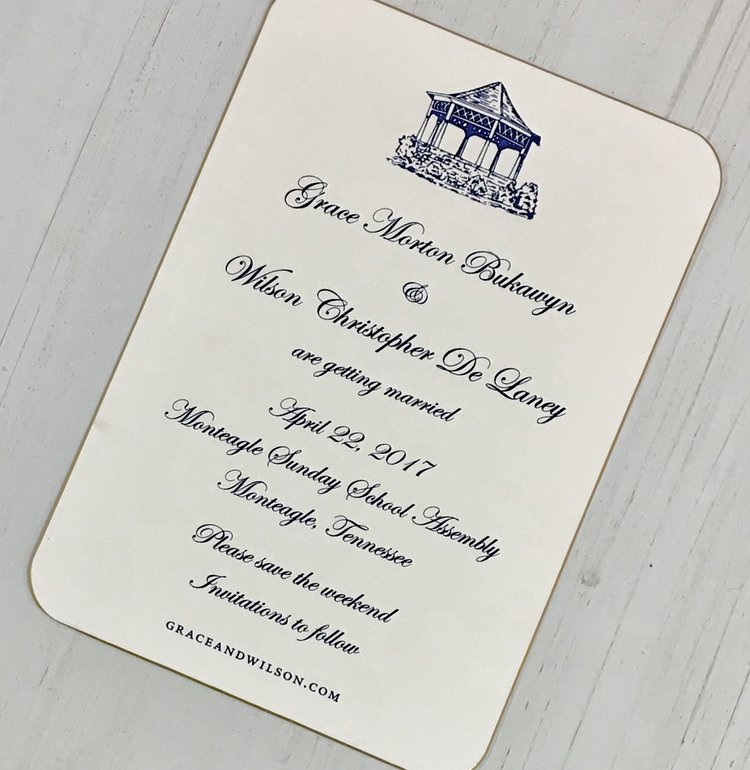 Grace Morton Bukawyn
&
Wilson Christopher De Laney
are getting married
April 22, 2017
Monteagle Sunday School Assembly
Monteagle, Tennessee
Please save the weekend
Invitations to follow
GRACEANDWILSON.COM